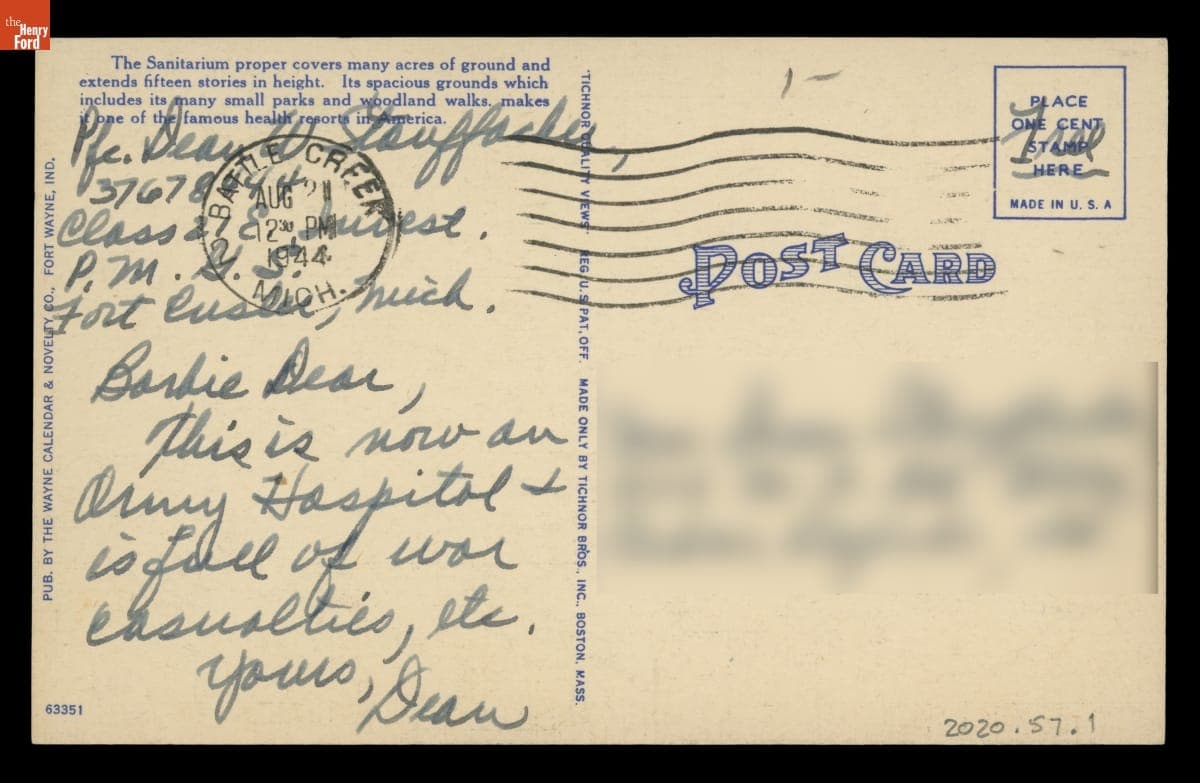 the
Henry
Ford
The Sanitarium proper covers many acres of ground and
extends fifteen stories in height. Its spacious grounds which
includes its many small parks and woodland walks, makes
it one of the famous health resorts in America.
Pfc. Dean Stauffacher,
37678
Class 27 E, Invest.
P.M. S.
Fort Custer, Mich.
BATTLE CREEK
AUG 21
12 30 PM
1944
2
MICH.
Barbie Dear,
This is now an
Army Hospital +
is full of war
casualties, etc.
Yours,
Dean
63351
PUB. BY THE WAYNE CALENDAR & NOVELTY CO., FORT WAYNE, IND.
"TICHNOR QUALITY VIEWS" REG. U. S. PAT. OFF. MADE ONLY BY TICHNOR BROS., INC., BOSTON, MASS.
1-
PLACE
ONE CENT
STAMP
HERE
MADE IN U. S. A
Free
POST CARD
2020.57.1